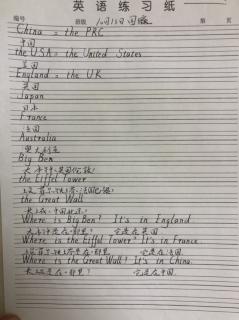 英语练习纸
编号 班级 10月13日 页
China = the PRC
中国
the USA = the United States
美国
England = the UK
英国
Japan
日本
France
法国
Australia
澳大利亚
Big Ben
大本钟
the Eiffel Tower
the Great Wall
长城
Where is Big Ben? It's in England
大本钟是在哪里? 它是在英国
Where is the Eiffel Tower? It's in France.
它是在法国
Where is the Great Wall? It's in China.
长城是在哪里? 它是在中国.